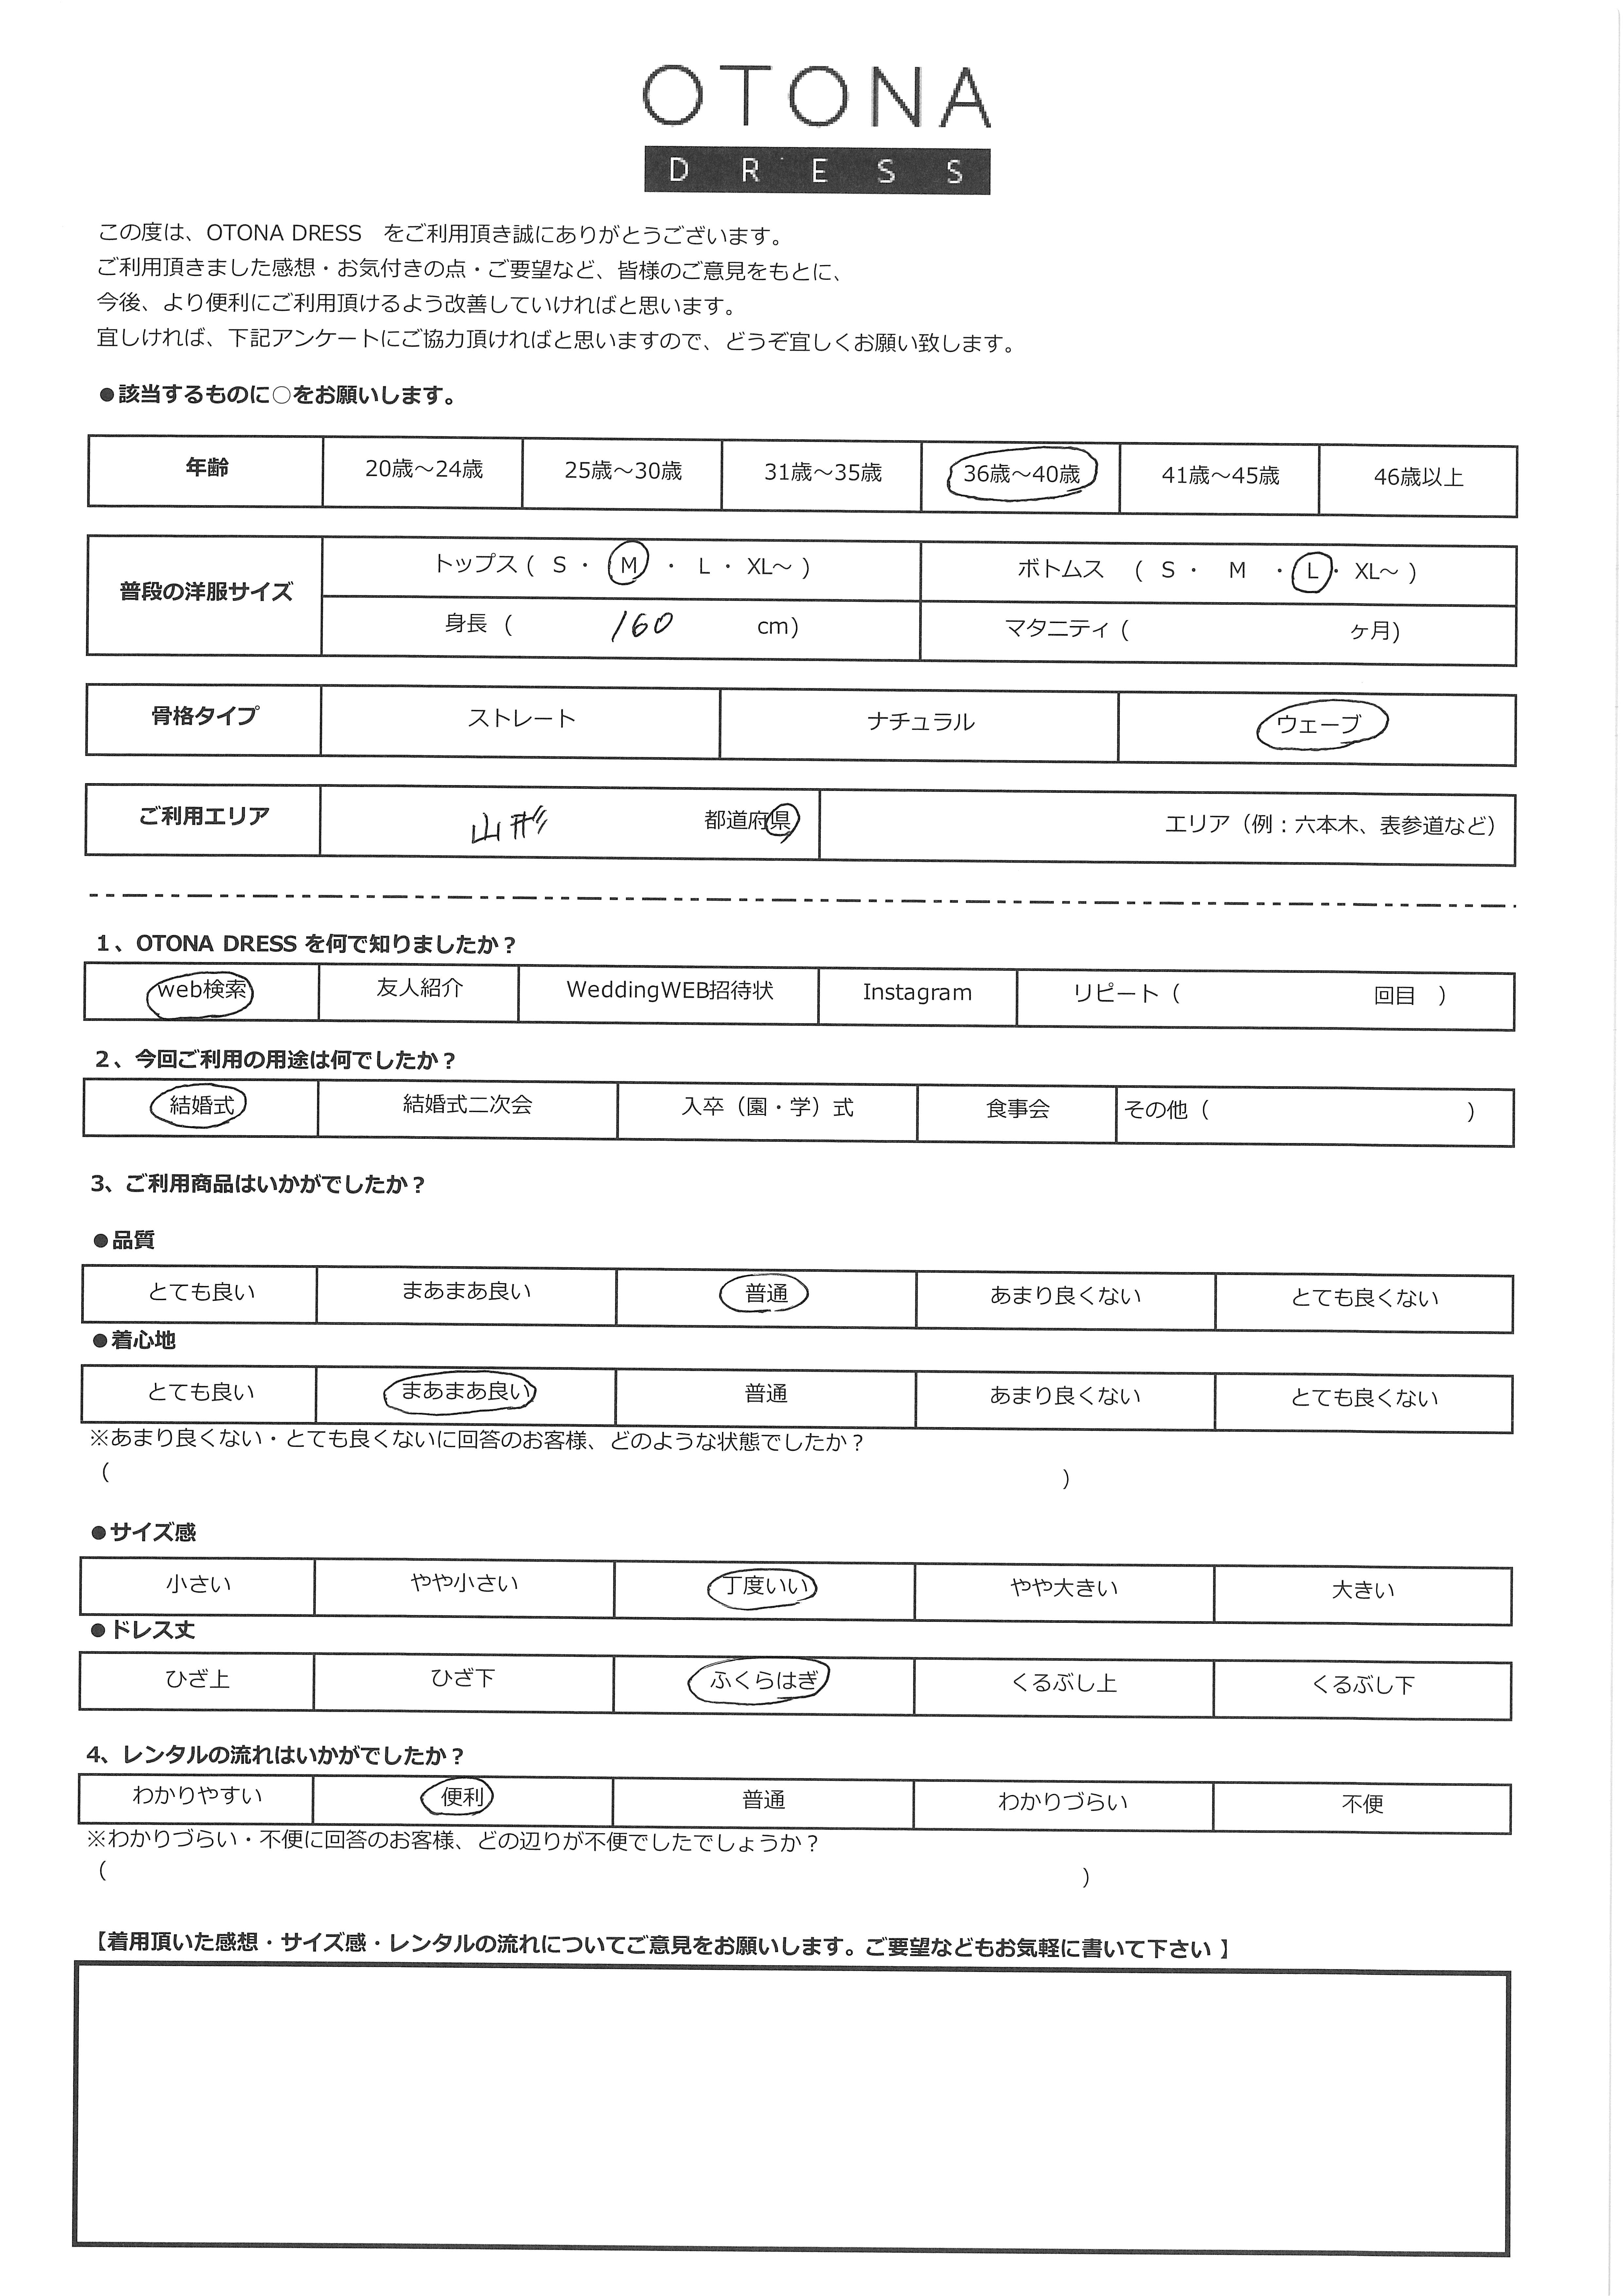 OTONA
DRESS
この度は、OTONA DRESS をご利用頂き誠にありがとうございます。
ご利用頂きました感想・お気付きの点・ご要望など、皆様のご意見をもとに、
今後、より便利にご利用頂けるよう改善していければと思います。
宜しければ、下記アンケートにご協力頂ければと思いますので、どうぞ宜しくお願い致します。
●該当するものに○をお願いします。
年齢 20歳～24歳 25歳～30歳 31歳～35歳 36歳～40歳 41歳～45歳 46歳以上
普段の洋服サイズ
トップス ( S ・ M ・ L ・ XL～ ) ボトムス ( S ・ M ・ L ・ XL～ )
身長 ( 160 cm) マタニティ ( ヶ月)
骨格タイプ ストレート ナチュラル ウェーブ
ご利用エリア 山形 都道府県 エリア（例：六本木、表参道など）
1、OTONA DRESS を何で知りましたか？
web検索 友人紹介 WeddingWEB招待状 Instagram リピート（ 回目 ）
2、今回ご利用の用途は何でしたか？
結婚式 結婚式二次会 入卒（園・学）式 食事会 その他（ ）
3、ご利用商品はいかがでしたか？
●品質
とても良い まあまあ良い 普通 あまり良くない とても良くない
●着心地
とても良い まあまあ良い 普通 あまり良くない とても良くない
※あまり良くない・とても良くないに回答のお客様、どのような状態でしたか？
（ ）
●サイズ感
小さい やや小さい 丁度いい やや大きい 大きい
●ドレス丈
ひざ上 ひざ下 ふくらはぎ くるぶし上 くるぶし下
4、レンタルの流れはいかがでしたか？
わかりやすい 便利 普通 わかりづらい 不便
※わかりづらい・不便に回答のお客様、どの辺りが不便でしたでしょうか？
（ ）
【着用頂いた感想・サイズ感・レンタルの流れについてご意見をお願いします。ご要望などもお気軽に書いて下さい 】